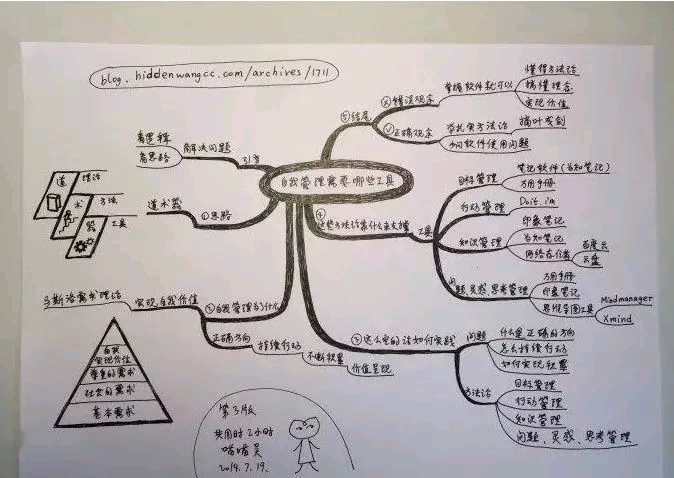 blog.hiddenwangcc.com/archives/1711
自我管理需要哪些工具
引言
解决问题
看逻辑
看思路
①思路
道术器
道
理论
术
方法
器
工具
②自我管理为什么
实现自我价值
马斯洛需求理论
自我
实现价值
尊重的需求
社会的需求
基本需求
正确方向
持续行动
不断积累
价值呈现
③这么空的话如何实践
问题
什么是正确的方向
怎么持续行动
如何实现积累
方法论
目标管理
行动管理
知识管理
问题、灵感、思考管理
④这些方法论靠什么来支撑
工具
目标管理
笔记软件(为知笔记)
方用手册
行动管理
Doit.im
知识管理
印象笔记
为知笔记
网络存储
百度云
云盘
问题、灵感、思考管理
方用手册
印象笔记
思维导图工具
Mindmanager
Xmind
⑤结尾
错误观念
掌握软件就可以
懂得方法论
搞懂理念
实现价值
正确观念
学扎实方法论
摘叶成剑
知何软件使用问题
第3版
共用时2小时
喵喵吴
2014.7.19.